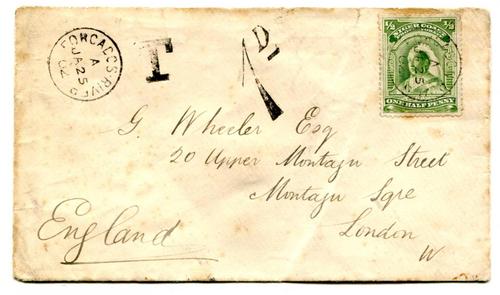 FORCADOS-RIVER
A
JA 25
02
T
D
½ ½
NIGER COAST
ONE HALF PENNY
G. Wheeler Esq
20 Upper Montagu Street
Montagu Sqre
London
W
England